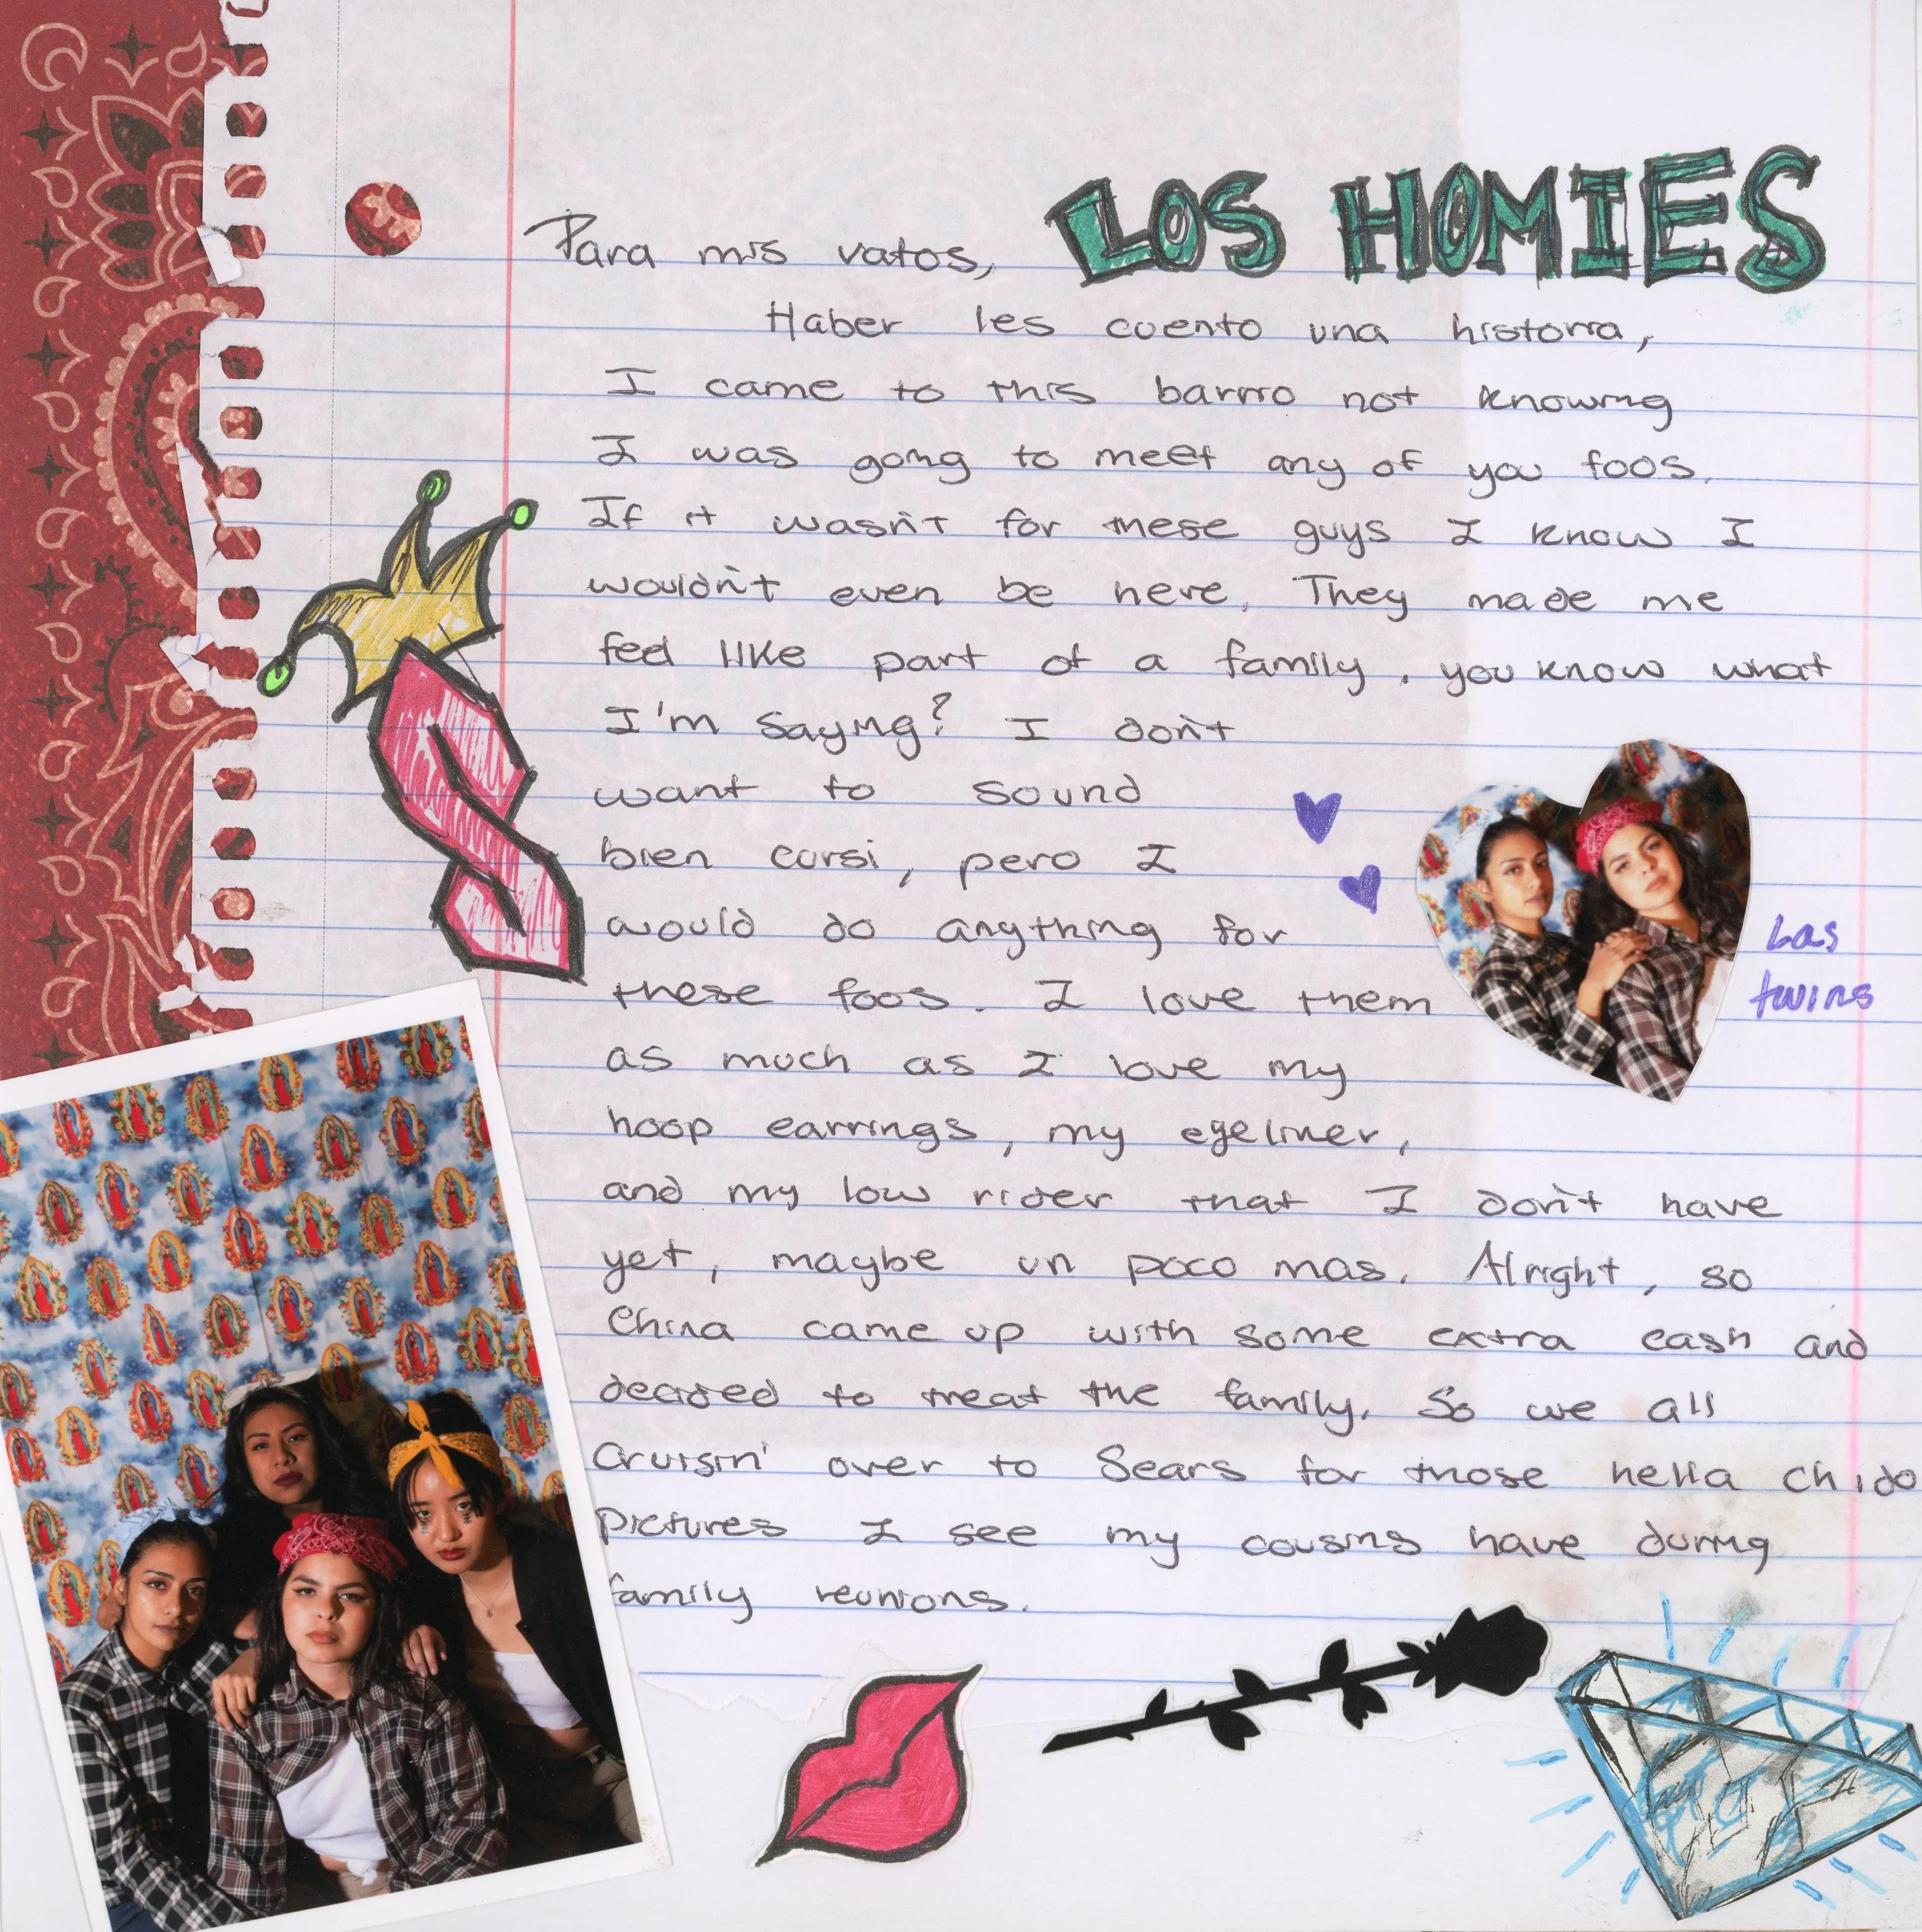 LOS HOMIES
Para mis vatos,
Haber les cuento una historia,
I came to this barrio not knowing
I was going to meet any of you foos.
If it wasn't for these guys I know I
wouldn't even be here. They made me
feel like part of a family. you know what
I'm saying? I don't
want to sound
bien cursi, pero I
would do anything for
these foos. I love them
as much as I love my
hoop earrings, my eyeliner,
and my low rider that I don't have
yet, maybe un poco mas. Alright, so
China came up with some extra cash and
decided to treat the family. So we all
cruisin' over to Sears for those hella chido
pictures I see my cousins have during
family reunions.
Las
twins